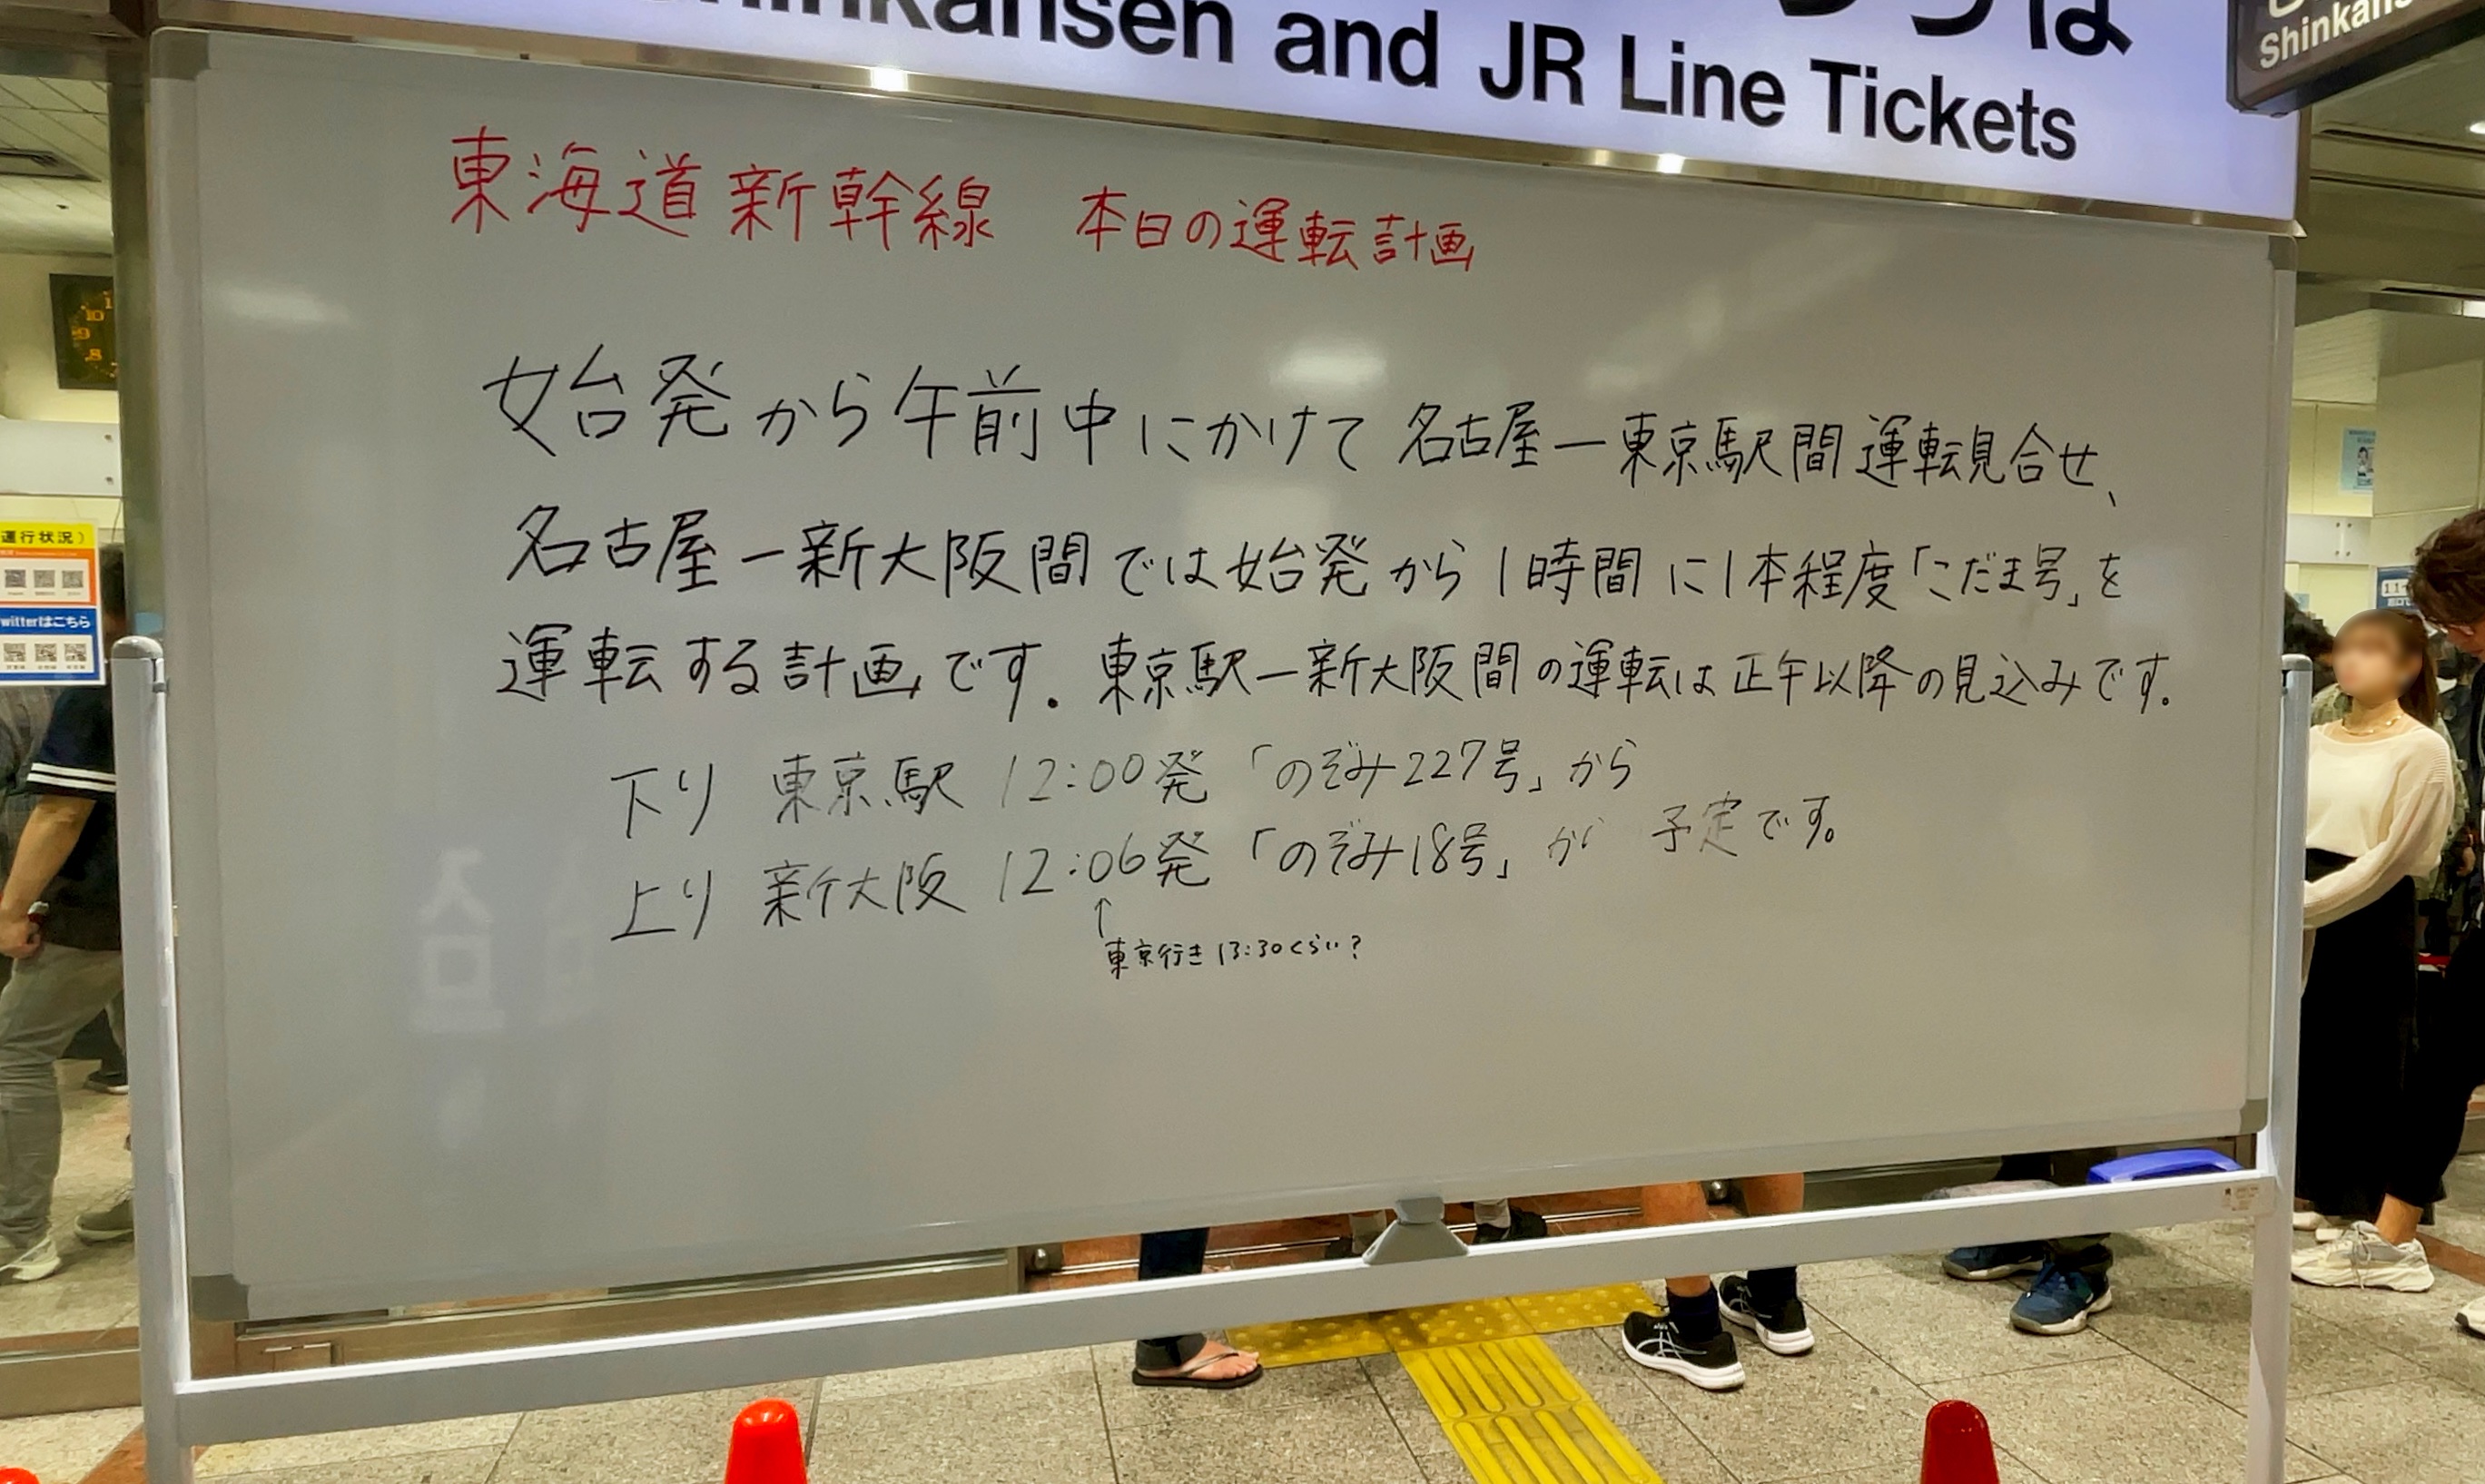 Shinkansen and JR Line Tickets
Shinkans
東海道新幹線 本日の運転計画
始発から午前中にかけて名古屋ー東京駅間運転見合せ、
名古屋ー新大阪間では始発から1時間に1本程度「こだま号」を
運転する計画です。東京駅ー新大阪間の運転は正午以降の見込みです。
下り 東京駅 12:00発 「のぞみ227号」から
上り 新大阪 12:06発 「のぞみ18号」が 予定です。
↑
東京行き 13:30くらい?
運行状況）
witterはこちら
10
9
8